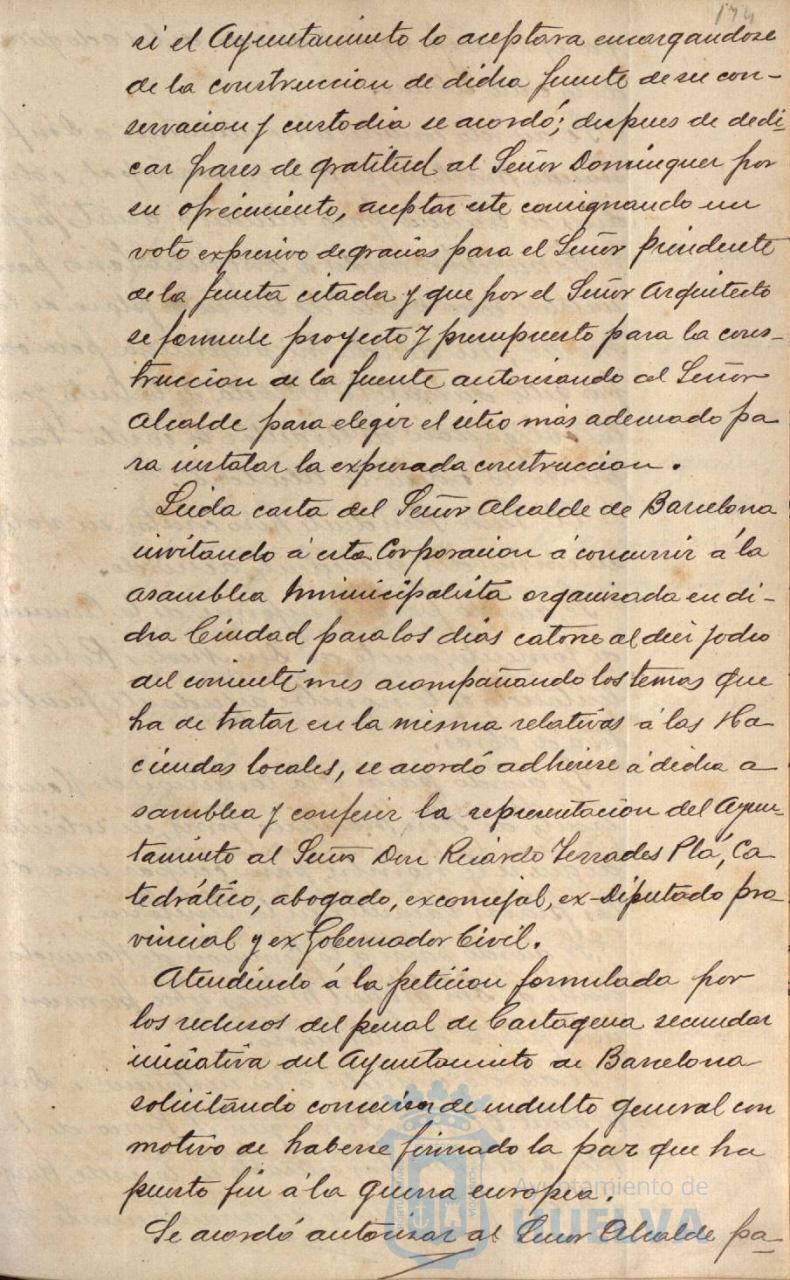 174
si el Ayuntamiento lo aceptara encargandose
de la construccion de dicha fuente de su con-
servacion y custodia se acordó; despues de dedi-
car frases de gratitud al Señor Dominguez por
su ofrecimiento, aceptar este consignando un
voto expresivo de gracias para el Señor presidente
de la Junta citada y que por el Señor Arquitecto
se formule proyecto y presupuesto para la cons-
truccion de la fuente autorisando al Señor
Alcalde para elegir el sitio más adecuado pa
ra instalar la expresada construccion.
Leida carta del Señor Alcalde de Barcelona
invitando á esta Corporacion á concurrir á la
asamblea Municipalista organisada en di-
cha Ciudad para los dias catorce al diez y ocho
del corriente mes acompañando los temas que
ha de tratar en la misma relativas á las Ha-
ciendas locales, se acordó adherirse á dicha a-
samblea y conferir la representacion del Ayun-
tamiento al Señor Don Ricardo Terrades Plá, Ca
tedrático, abogado, exconcejal, ex-Diputado pro
vincial y ex Gobernador Civil.
Atendiendo á la peticion formulada por
los reclusos del penal de Cartagena secundar
iniciativa del Ayuntamiento de Barcelona
solicitando concesion de indulto general con
motivo de haberse firmado la paz que ha
puesto fin á la guerra europea.
Se acordó autorisar al Señor Alcalde pa-
Ayuntamiento de
HUELVA